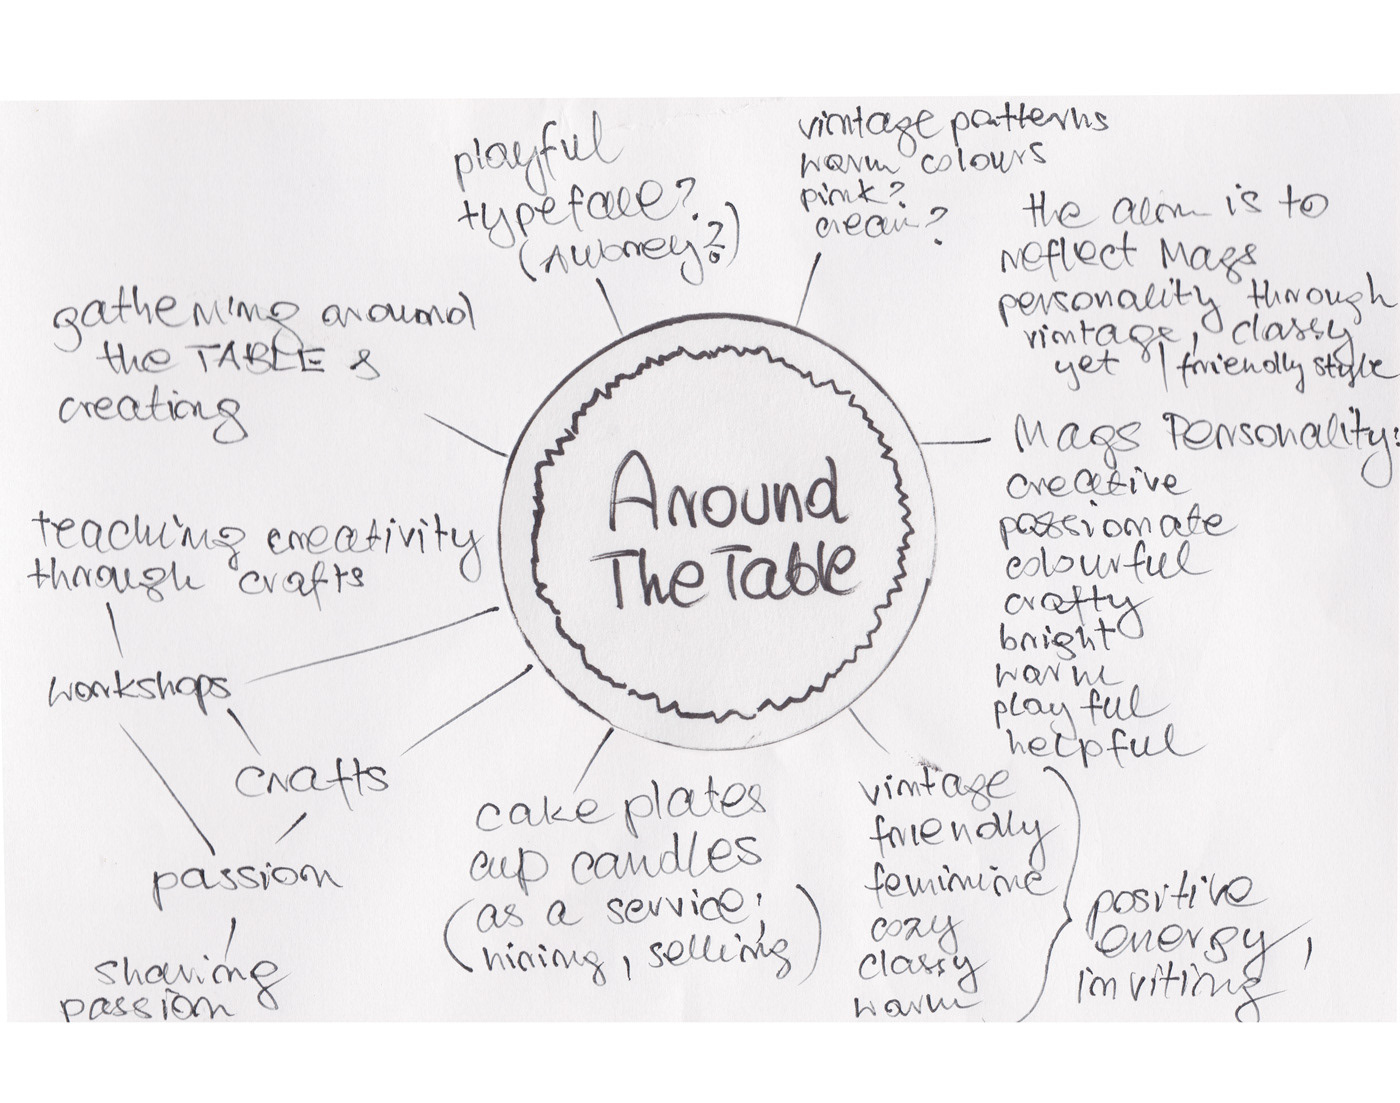 playful
typeface?
(Aubrey?)
vintage patterns
warm colours
pink?
cream?
the aim is to
reflect Mags
personality through
vintage, classy
yet friendly style
gathering around
the TABLE &
creating
Around
The Table
Mags Personality:
creative
passionate
colourful
crafty
bright
warm
playful
helpful
teaching creativity
through crafts
workshops
crafts
passion
sharing
passion
cake plates
cup candles
(as a service:
hiring, selling)
vintage
friendly
feminine
cozy
classy
warm
positive
energy,
inviting